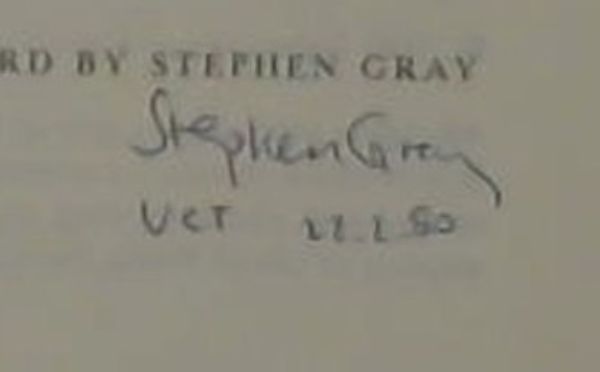 RD BY STEPHEN GRAY
Stephen Gray
UCT 22.2.80